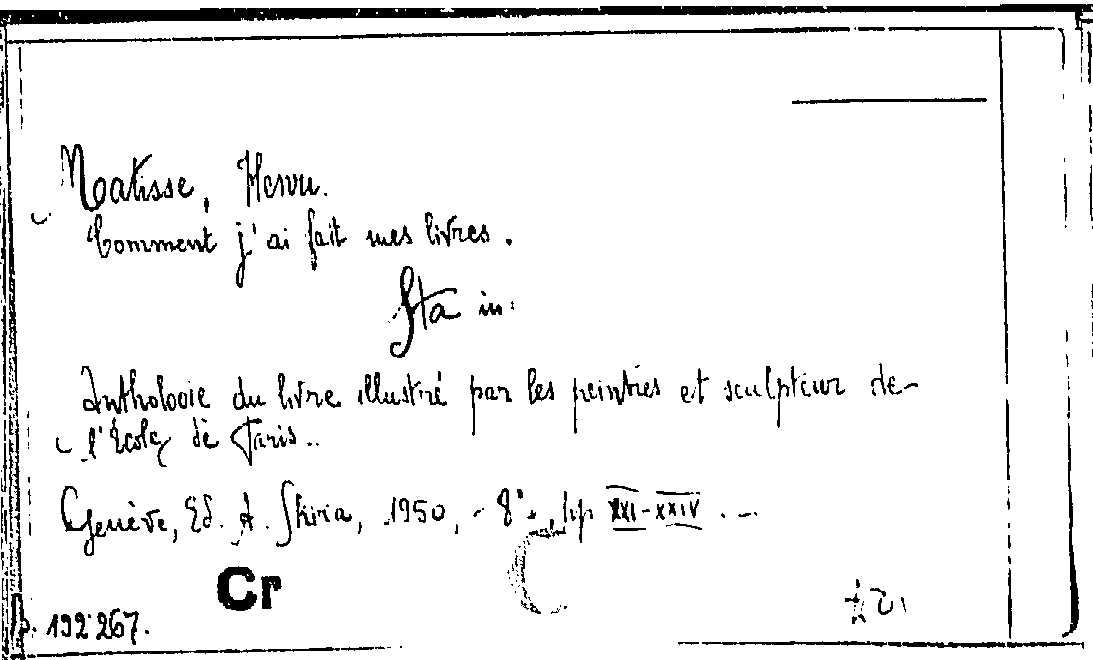 Matisse, Henri.
Comment j'ai fait mes livres.
Sta in:
Anthologie du livre illustré par les peintres et sculpteur de
l'École de Paris..
Genève, Ed. A. Skira, 1950, - 8°. pp XXI-XXIV . -
Cr
192267.